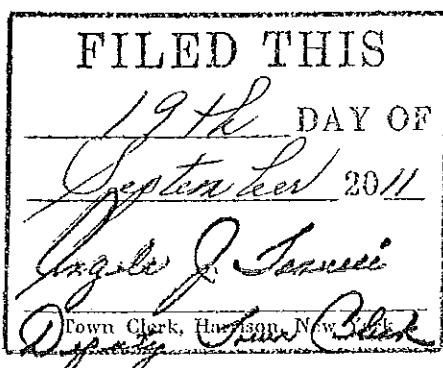 FILED THIS
19th DAY OF
September 2011
Angelo J.
Town Clerk, Harrison, New York
Deputy Town Clerk